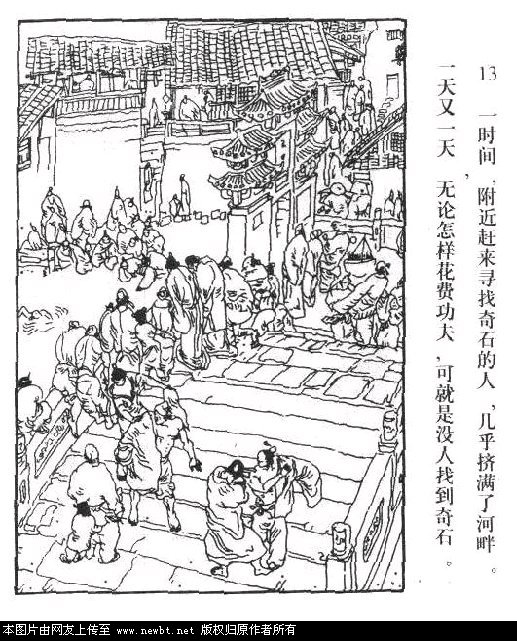 13 一时间,附近赶来寻找奇石的人,几乎挤满了河畔。
一天又一天,无论怎样花费功夫,可就是没人找到奇石。
本图片由网友上传至 www.newbt.net 版权归原作者所有